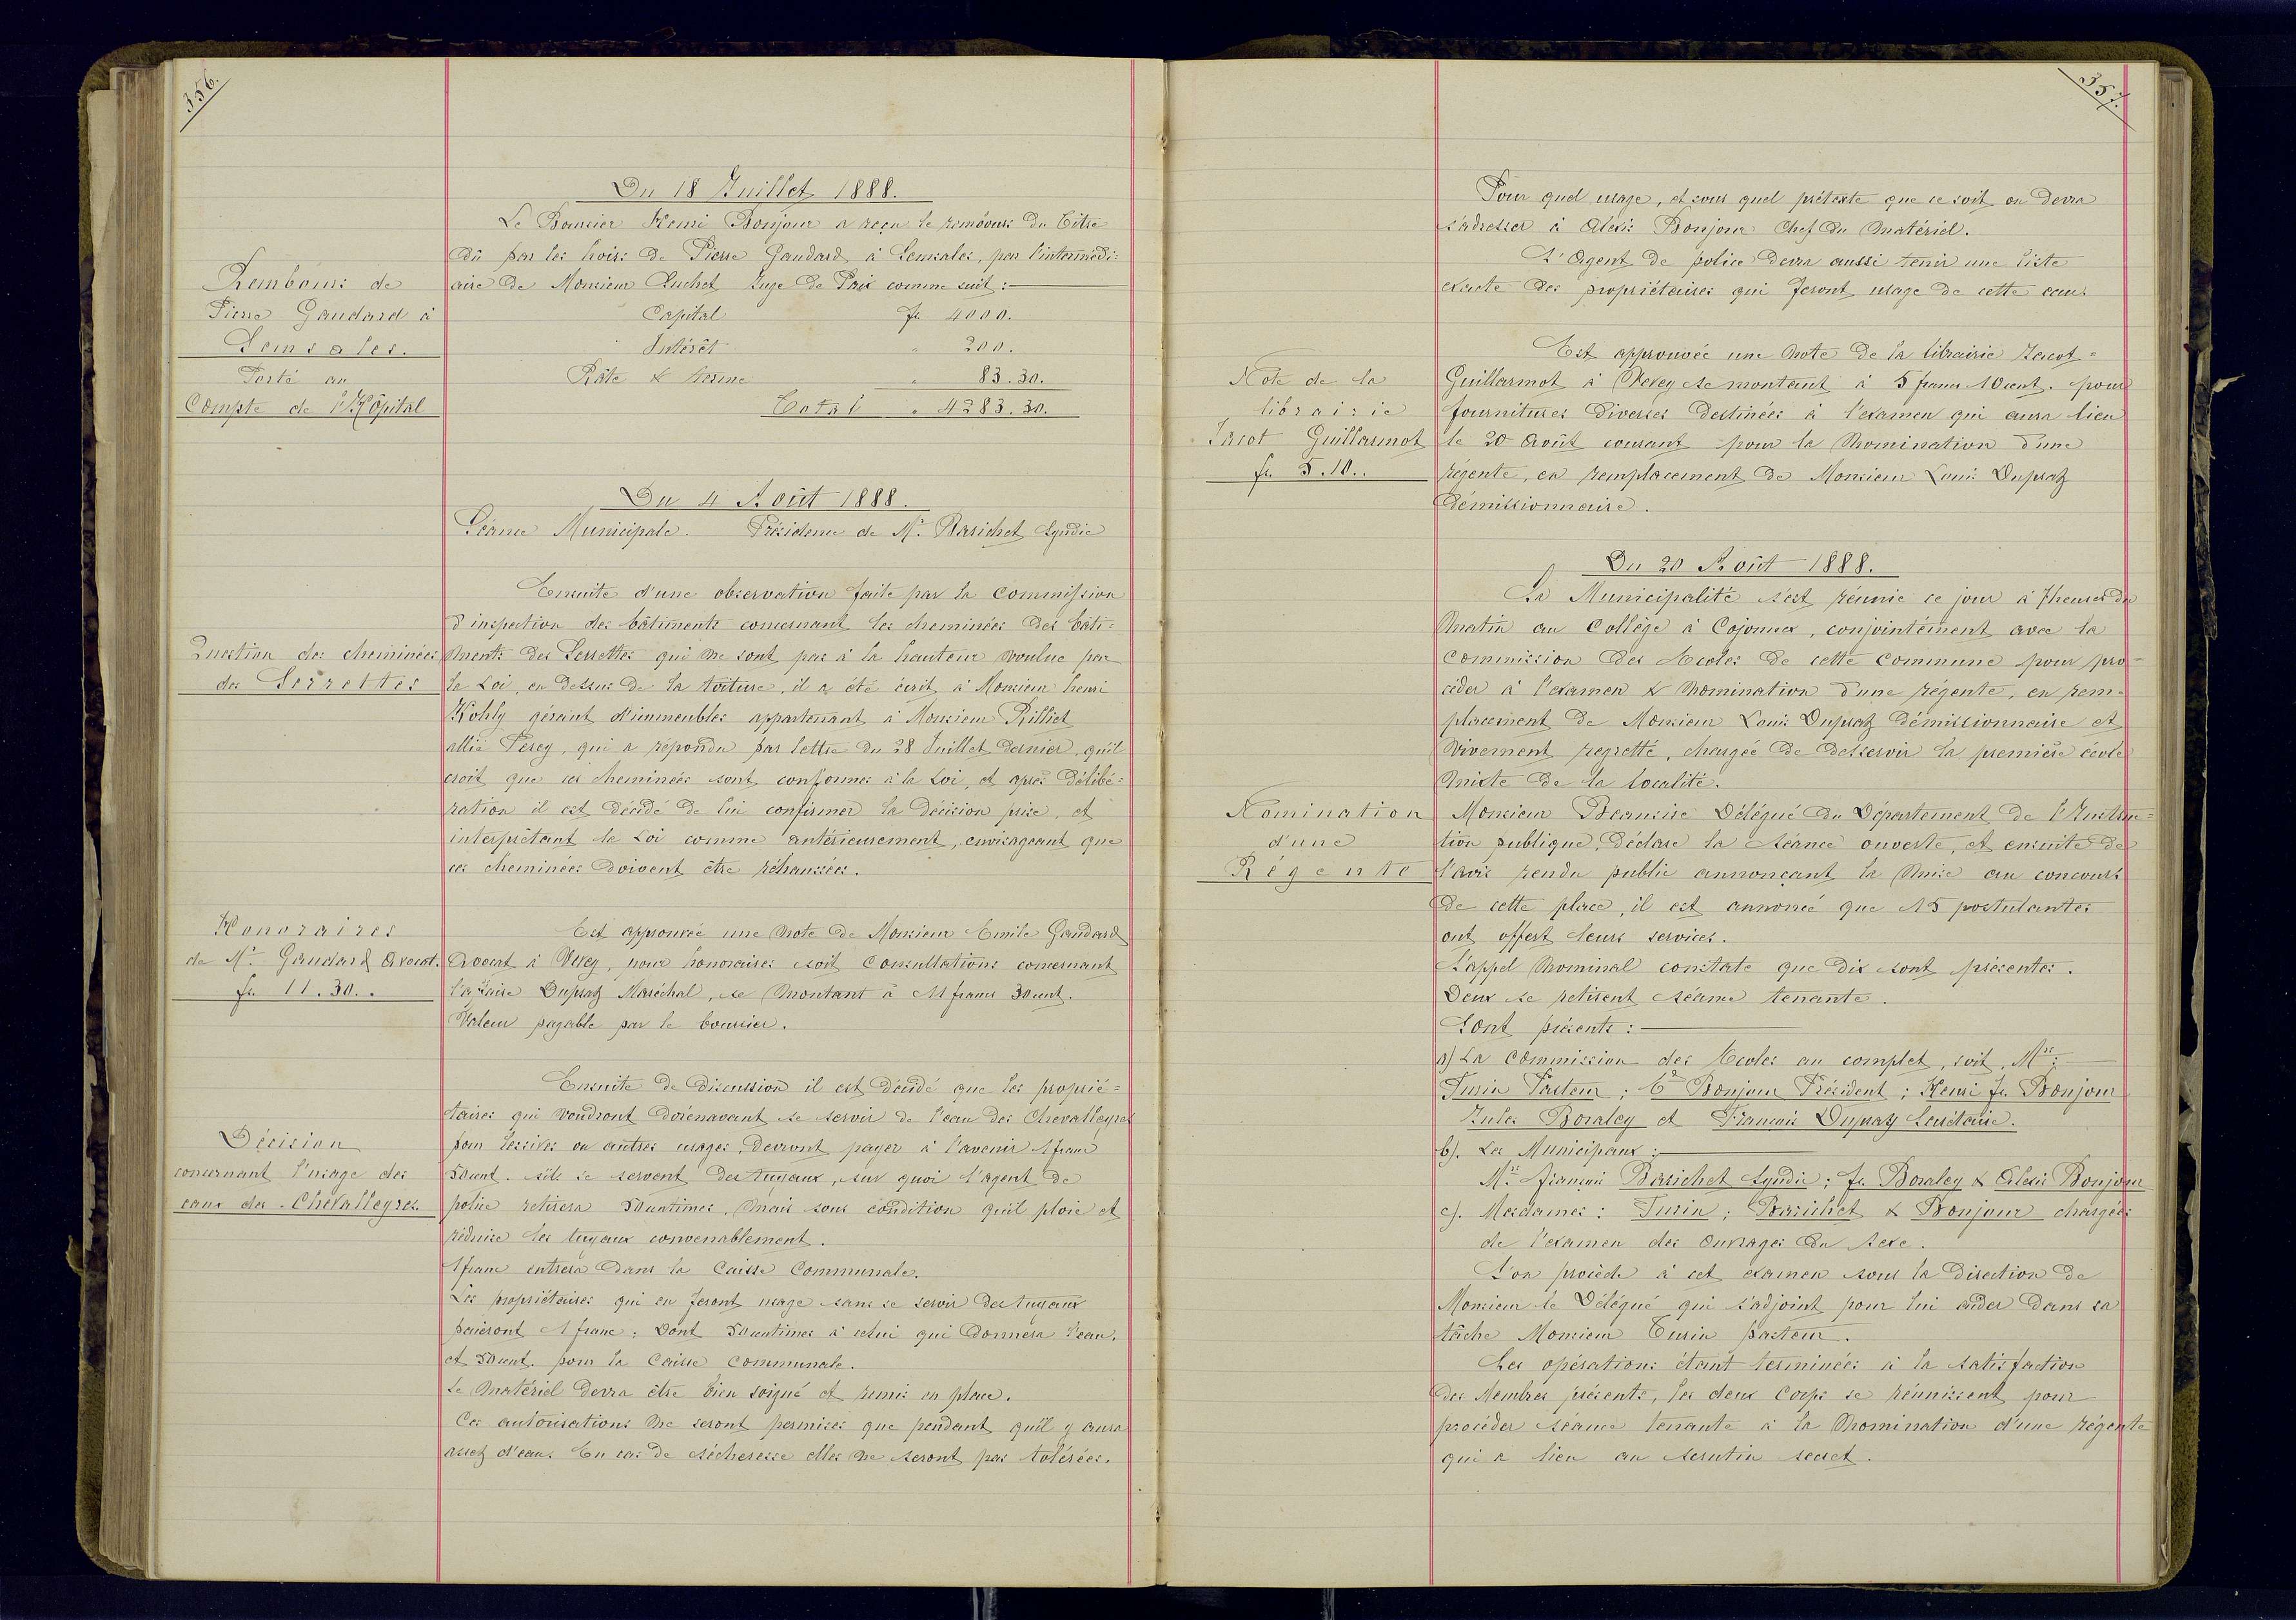 356.
Du 18 Juillet 1888.
Le Boursier Henri Bonjour a reçu le rembours du Titre
dû par les hoirs de Pierre Gaudard à Semsales, par l'intermédi=
Rembours de
Pierre Gaudard à
Semsales.
Porté au
Compte de l'Hôpital
aire de Monsieur Juge de Paix comme suit :
Capital fr 4000.
Intérêt " 200.
Râte & terme " 83.30.
Total " 4283.30.
Du 4 Août 1888.
Séance Municipale. Présidence de Mr. Barichet Syndic
Ensuite d'une observation faite par la Commission
d'inspection des bâtiments concernant les cheminées des bâti=
Question des cheminées
des Serrettes
ments des Serrettes qui ne sont pas à la hauteur voulue par
la Loi, en dessus de la toiture, il a été écrit à Monsieur henri
Kohly gérant d'immeubles appartenant à Monsieur Rilliet
allié Perey, qui a répondu par lettre du 28 Juillet dernier, qu'il
croit que ces cheminées sont conformes à la Loi, et après délibé=
ration il est décidé de lui confirmer la décision prise, et
interprêtant la Loi comme antérieurement, envisageant que
ces cheminées doivent être réhaussées.
Honoraires
de Mr. Gaudard Avocat.
fr. 11.30..
Est approuvée une note de Monsieur Emile Gaudard
Avocat à Vevey, pour honoraires soit Consultations concernant
l'affaire Dupraz Maréchal, se montant à 11 francs 30 cent.
Valeur payable par le boursier.
Ensuite de discussion il est décidé que les proprié=
taires qui voudront dorénavant se servir de l'eau des Chevalleyres
Décision
concernant l'usage des
eaux des Chevalleyres.
pour lessives ou autres usages, devront payer à l'avenir 1 franc
50 cent. s'ils se servent des tuyaux, sur quoi l'agent de
police retirera 50 centimes, mais sous condition qu'il ploie et
réduise les tuyaux convenablement.
1 franc entrera dans la Caisse Communale.
Les propriétaires qui en feront usage sans se servir des tuyaux
paieront 1 franc ; dont 50 centimes à celui qui donnera l'eau,
et 50 cent. pour la Caisse communale.
Le matériel devra être bien soigné et remis en place.
Ces autorisations ne seront permises que pendant qu'il y aura
assez d'eau. En cas de sécheresse elles ne seront pas tolérées.
357.
Pour quel usage, et sous quel prétexte que ce soit on devra
s'adresser à Alexis Bonjour Chef du matériel.
L'Agent de police devra aussi tenir une liste
exacte des propriétaires qui feront usage de cette eau.
Note de la
librairie
Jacot Guillarmot
fr. 5.10..
Est approuvée une note de la librairie Jacot=
Guillarmot à Vevey se montant à 5 francs 10 cent. pour
fournitures diverses destinées à l'examen qui aura lieu
le 20 Août courant pour la nomination d'une
régente, en remplacement de Monsieur Louis Dupraz
démissionnaire.
Du 20 Août 1888.
La Municipalité s'est réunie ce jour à 7 heures du
matin au Collège à Cojonnex, conjointément avec la
Commission des Ecoles de cette Commune pour pro=
céder à l'examen & nomination d'une régente, en rem=
placement de Monsieur Louis Dupraz démissionnaire et
vivement regretté, chargée de desservir la première école
mixte de la localité.
Nomination
d'une
Régente
Monsieur Beausire Délégué du Département de l'Instruc=
tion publique, déclare la séance ouverte, et ensuite de
l'avis rendu public annonçant la mise au concours
de cette place, il est annoncé que 15 postulantes
ont offert leurs services.
L'appel nominal constate que dix sont présentes.
Deux se retirent séance tenante.
Sont présents :
a) La Commission des Ecoles au complet, soit, Mrs:
Turin Pasteur ; Ed Bonjour Président ; Henri fs. Bonjour
Jules Boraley et François Dupraz Secrétaire.
b). Les Municipaux :
Mrs. François Barichet Syndic ; fs. Boraley & Alexis Bonjour
c). Mesdames : Turin ; Barichet & Bonjour chargées
de l'examen des Ouvrages du Sexe.
L'on procède à cet examen sous la direction de
Monsieur le Délégué qui s'adjoint pour lui aider dans sa
tâche Monsieur Turin pasteur.
Les opérations étant terminées à la satisfaction
des Membres présents, les deux Corps se réunissent pour
procéder séance tenante à la nomination d'une régente
qui a lieu au scrutin secret.